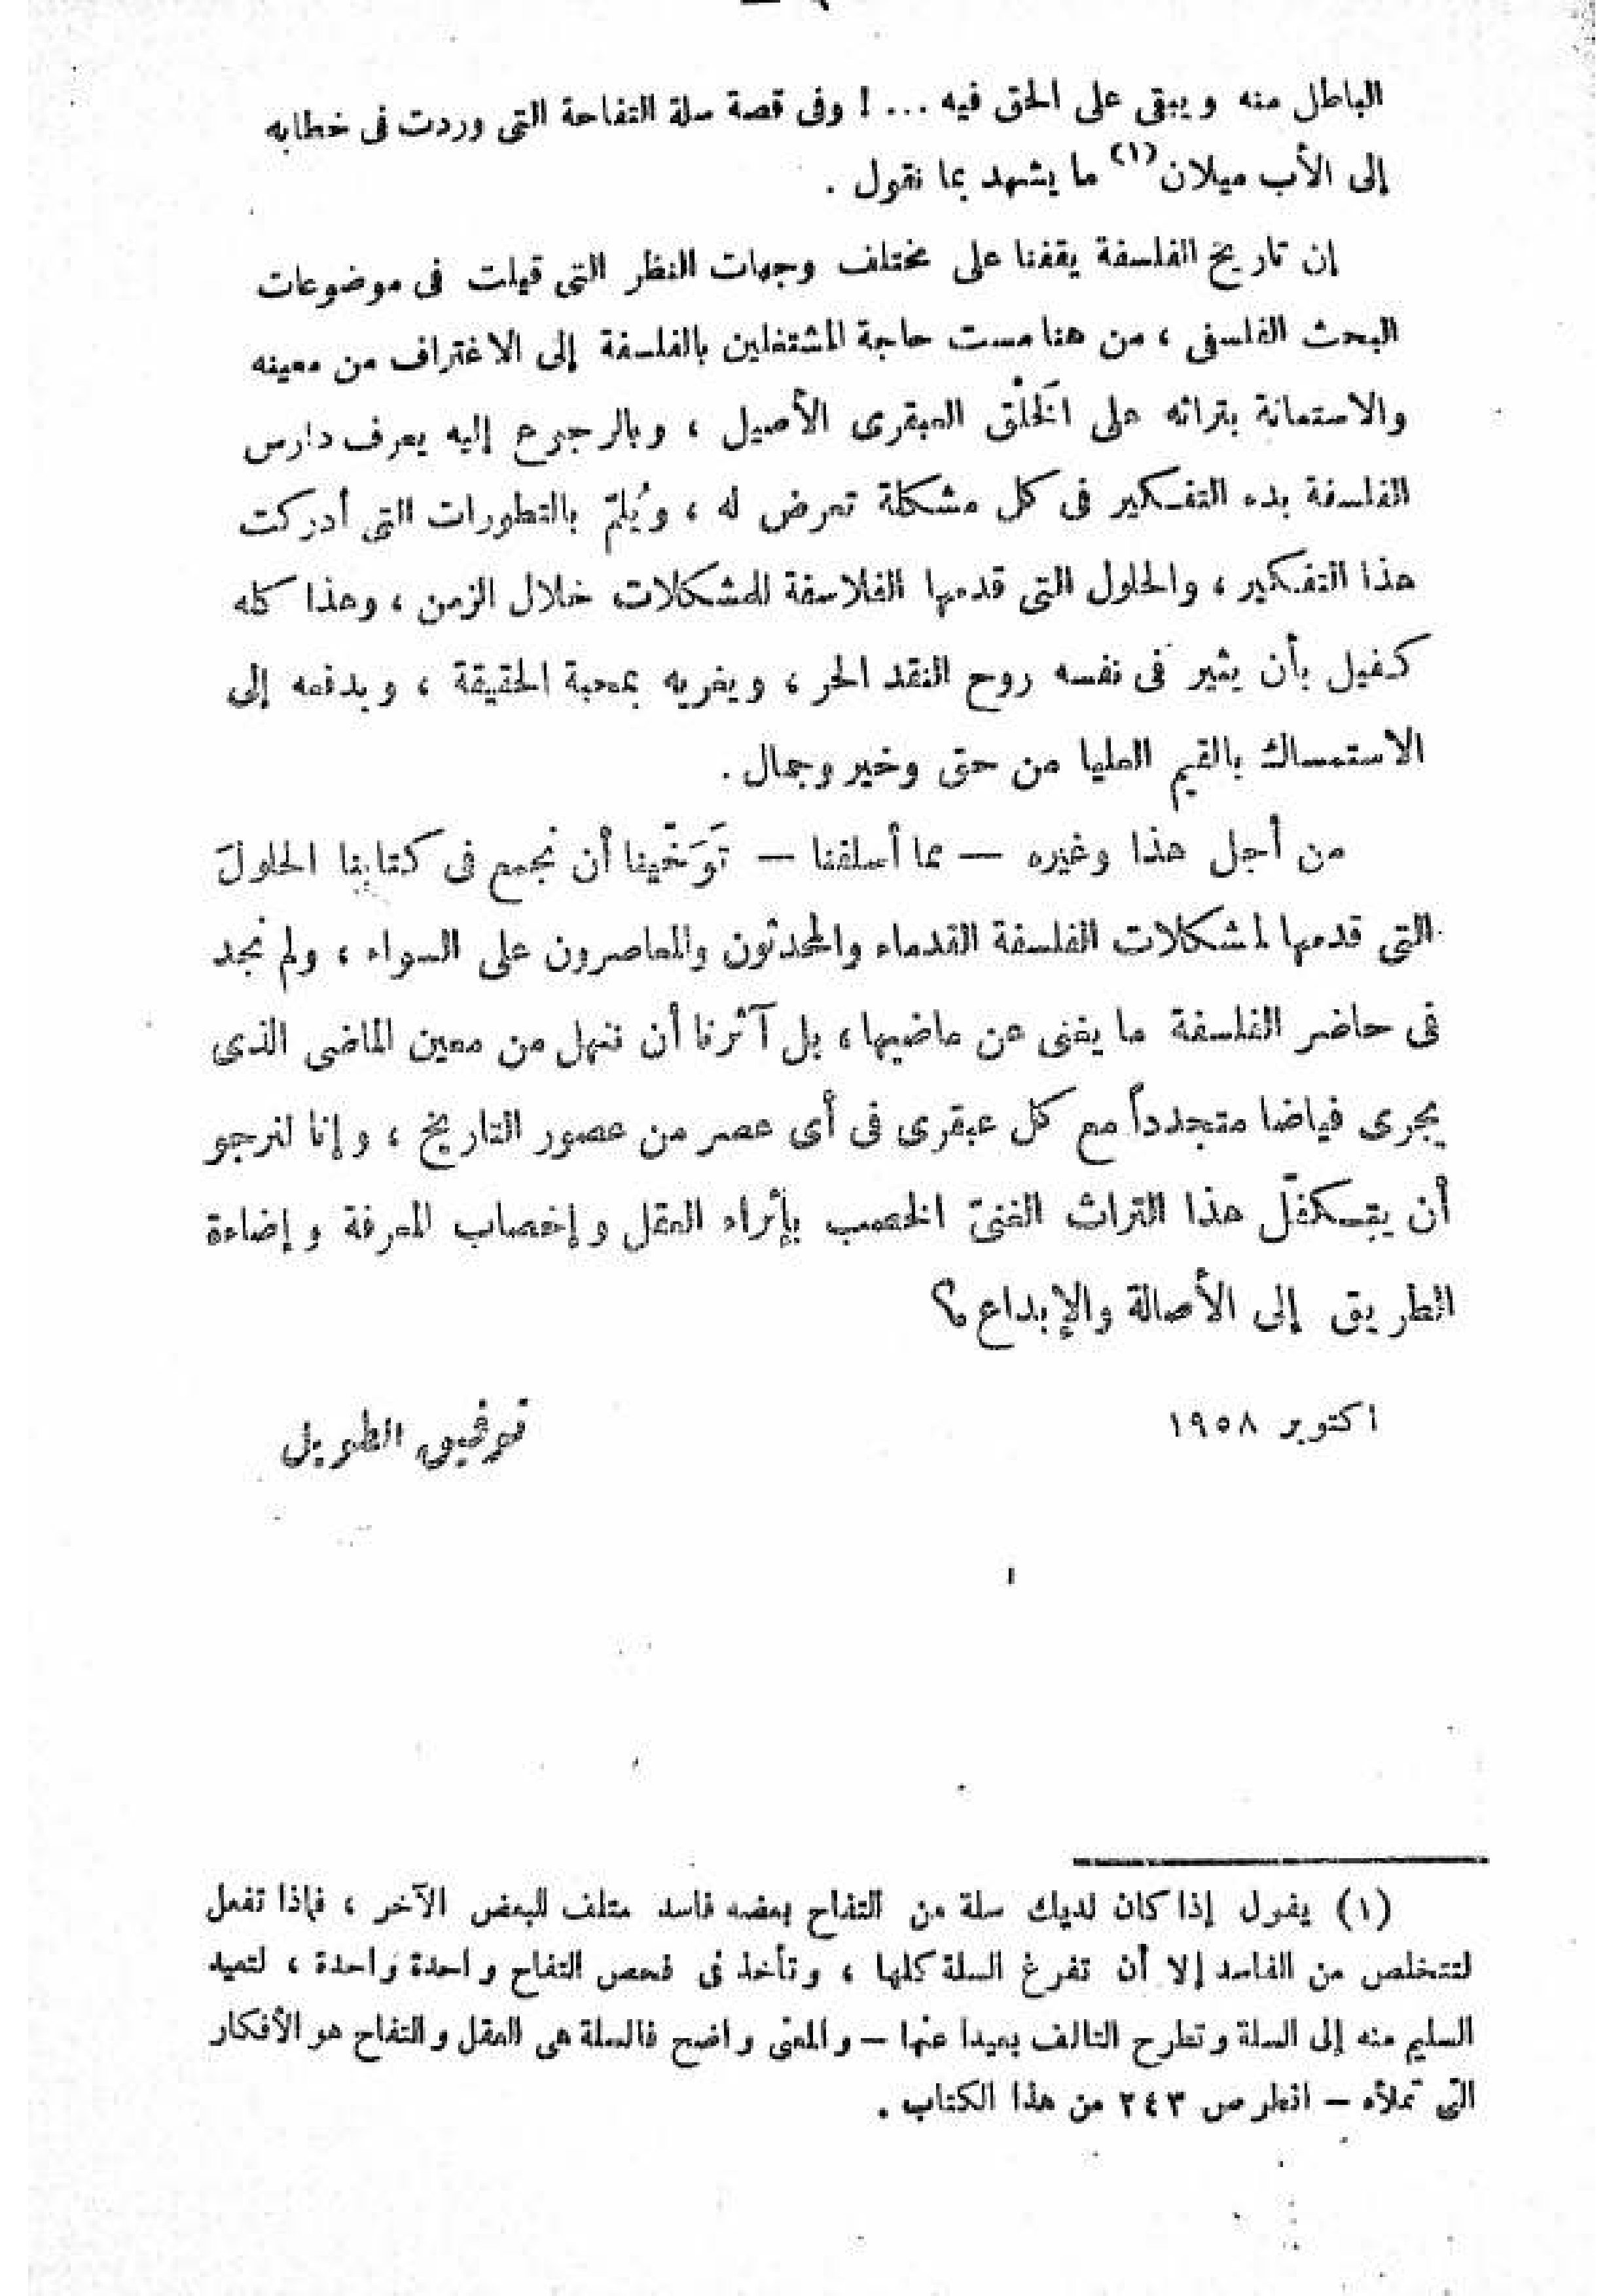 الباطل منه ويبقى على الحق فيه ... ! وفى قصة سلة التفاحة التى وردت فى خطابه
إلى الأب ميلان (١) ما يشهد بما نقول .
إن تاريخ الفلسفة يقفنا على مختلف وجهات النظر التى قيلت فى موضوعات
البحث الفلسفى ، من هنا مست حاجة المشتغلين بالفلسفة إلى الاغتراف من معينه
والاستعانة بتراثه على الخَلْق العبقرى الأصيل ، وبالرجوع إليه يعرف دارس
الفلسفة بدء التفكير فى كل مشكلة تعرض له ، ويُلمّ بالتطورات التى أدركت
هذا التفكير ، والحلول التى قدمها الفلاسفة للمشكلات خلال الزمن ، وهذا كله
كفيل بأن يثير فى نفسه روح النقد الحر ، ويغريه بمحبة الحقيقة ، ويدفعه إلى
الاستمساك بالقيم العليا من حق وخير وجمال .
من أجل هذا وغيره — مما أسلفنا — تَوَخَّينا أن نجمع فى كتابنا الحلولَ
التى قدمها لمشكلات الفلسفة القدماء والمحدثون والمعاصرون على السواء ، ولم نجد
فى حاضر الفلسفة ما يغنى عن ماضيها ، بل آثرنا أن ننهل من معين الماضى الذى
يجرى فياضا متجدداً مع كل عبقرى فى أى عصر من عصور التاريخ ، وإنا لنرجو
أن يتكفّل هذا التراث الغنىّ الخصب بإثراء العقل وإخصاب المعرفة وإضاءة
الطريق إلى الأصالة والإبداع ؟
اكتوبر ١٩٥٨
توفيق الطويل
(١) يقول إذا كان لديك سلة من التفاح بعضه فاسد متلف للبعض الآخر ، فماذا تفعل
لتتخلص من الفاسد إلا أن تفرغ السلة كلها ، وتأخذ فى فحص التفاح واحدة واحدة ، لتعيد
السليم منه إلى السلة وتطرح التالف بعيدا عنها – والمعنى واضح فالسلة هى العقل والتفاح هو الأفكار
التى تملأه – انظر ص ٢٤٣ من هذا الكتاب .